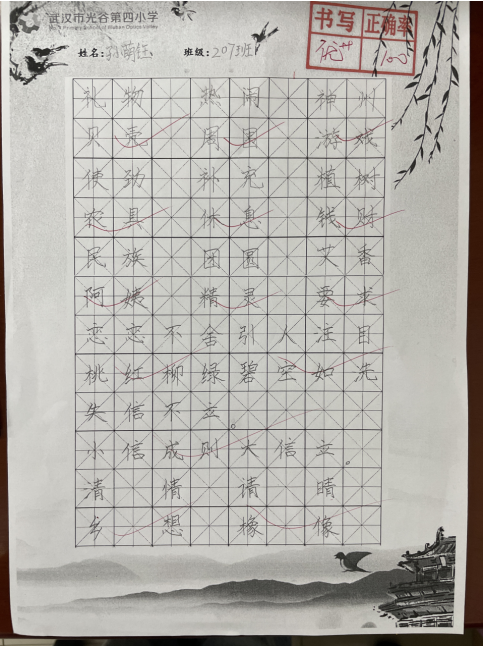 武汉市光谷第四小学
书写 正确率
姓名: 班级: 2073班
100
礼物 热闹 神州
贝壳 周围 游戏
使劲 补充 植树
农具 休息 钱财
民族 团圆 艾香
阿姨 精灵 要求
恋恋不舍引人注目
桃红柳绿碧空如洗
失信不立。
小信成则大信立。
清 情 请 晴
乡 想 橡 像